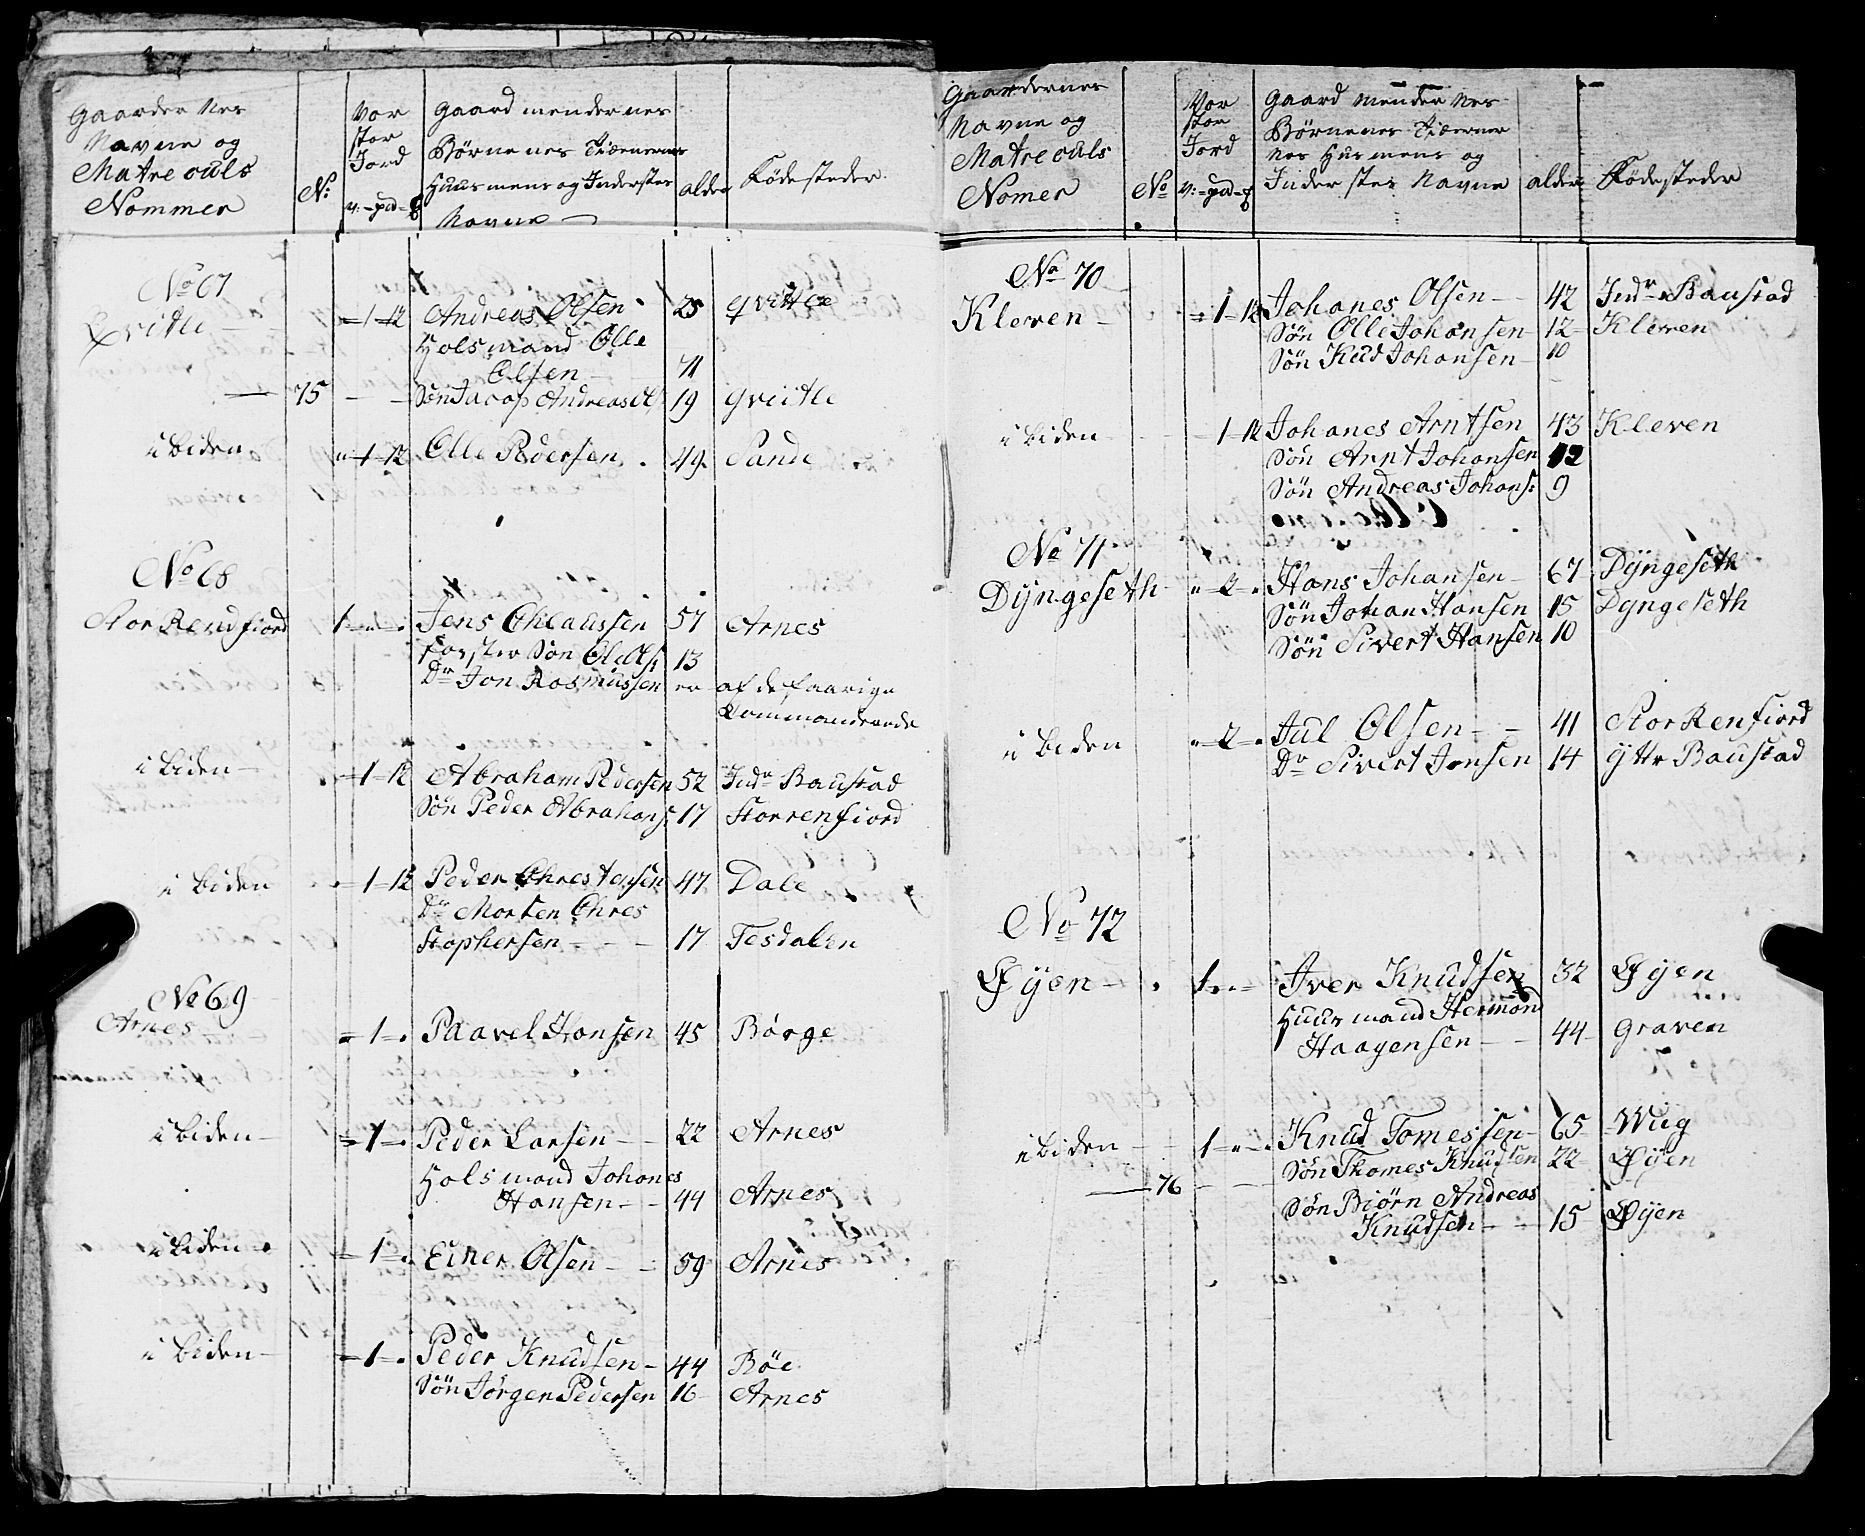 Gaardernes Navne og Matreculs Nommer | No: | Vor stor Jord v:=pd=f | Gaardmendernes Børnenes Tienernes Huusmens og Indersters Navne | alder | Fødesteder
No 67
Qvitle - =1=12 Andreas Olsen 25 qvitle
Holsmand Olle
Olsen 71
75 - - Søn Jacop Andreas Ols: 19 Qviitle
i biden "1=12 Olle Pedersen 49 Sande
No 68
Stor Renfiord 1="=" Jens Chlaussen 57 Arnes
Foster Søn Ole Ols: 13
Dr Jon Rasmussen er af de faarige
Commanderede
i biden =1=12 Abraham Pedersen 52 Indr Baustad
Søn Peder Abrahams: 17 Storrenfiord
i biden =1=12 Peder Chrestensen 47 Dale
Dr Morten Chres
stophersen - - - 17 Tesdalen
No 69
Arnes =1=" Paavel Hansen 45 Børge
i biden =1=" Peder Larsen - - 22 Arnes
Holsmand Johanes
Hansen - - 44 Arnes
i biden =1=" Einer Olsen - - 59 Arnes
i biden =1=" Peder Knudsen - 44 Böe
Søn Jørgen Pedersen 16 Arnes
Gaardernes Navne og Matreculs Nomer | No | Vor stor Jord v:=pd=f | Gaardmendernes Børnenes Tiener nes Husmens og Inderstes Navne | alder | Fødesteder
No 70
Kleven - =1=12 Johanes Olsen - - 42 Indr Baustad
Søn Olle Johansen 12 Kleven
Søn Knud Johansen 10
i biden - 1=12 Johanes Arntsen 43 Kleven
Søn Arnt Johansen 12
Søn Andreas Johans: 9
No 71
Dyngeseth "=2=" Hans Johansen - 67 Dyngeseth
Søn Johan Hansen 15 Dyngeseth
Søn Sivert Hansen 10
i biden "=2=" Jul Olsen - - 41 Stor Renfiord
Dr Sivert Jonsen 14 Yttr Baustad
No 72
Øyen - 1="=" Iver Knudsen 32 Øyen
Huusmand Hermond
Haagensen - - 44 Graven
i biden - 1="=" Knud Tomessen 65 Wiig
76 - - Søn Thomes Knudsen 22 Øyen
Søn Biørn Andreas
Knudsen - - 15 Øyen